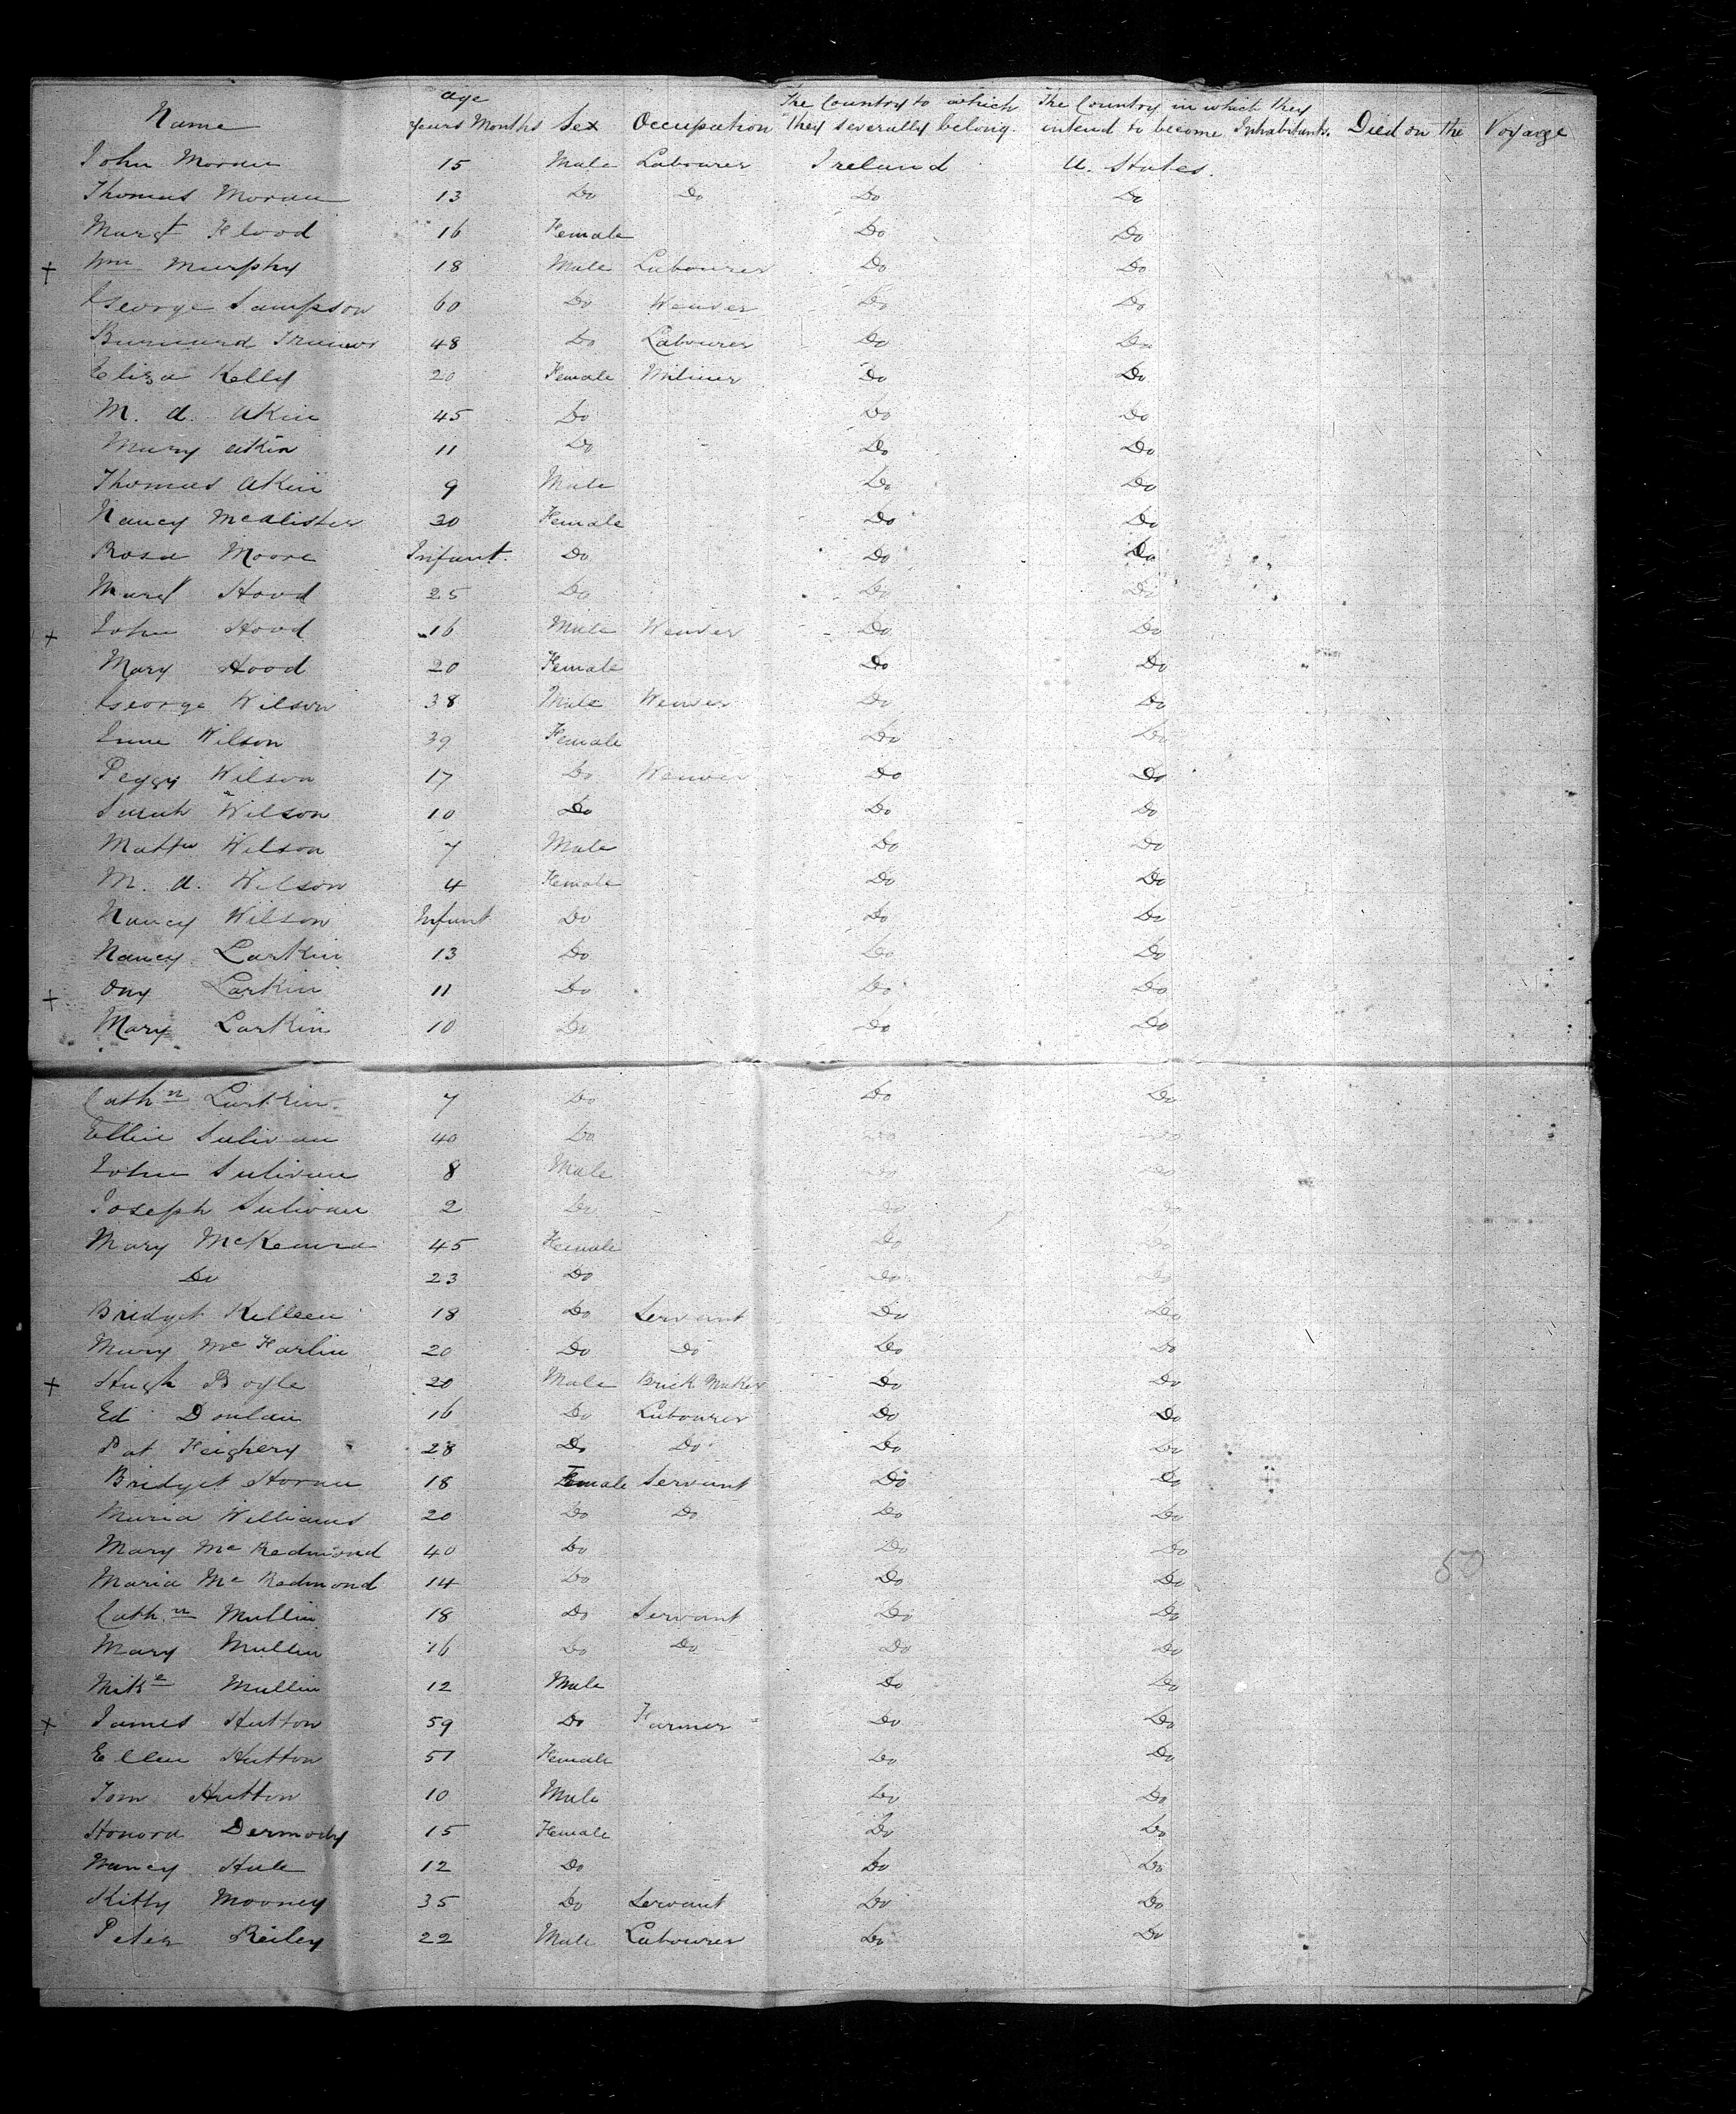 Name age years Months Sex Occupation The Country to which they severally belong. The Country in which they intend to become Inhabitants. Died on the Voyage
John Moran 15 Male Labourer Ireland U. States.
Thomas Moran 13 Do Do Do Do
Margt Flood 16 Female Do Do
+ Wm Murphy 18 Male Labourer Do Do
George Sampson 60 Do Weaver Do Do
Burnard 48 Do Labourer Do Do
Eliza Kelly 20 Female Miliner Do Do
M. A. Akin 45 Do Do Do
Mary Akin 11 Do Do Do
Thomas Akin 9 Male Do Do
Nancy McAlister 30 Female Do Do
Rosa Moore Infant. Do Do Do
Margt Hood 25 Do Do Do
+ John Hood 16 Male Weaver Do Do
Mary Hood 20 Female Do Do
George Wilson 38 Male Weaver Do Do
Wilson 39 Female Do Do
Peggy Wilson 17 Do Weaver Do Do
Sarah Wilson 10 Do Do Do
Mattw Wilson 7 Male Do Do
M. A. Wilson 4 Female Do Do
Nancy Wilson Infant Do Do Do
Nancy Larkin 13 Do Do Do
+ Ony Larkin 11 Do Do Do
Mary Larkin 10 Do Do Do
Cathn Larkin 7 Do Do Do
Ellin Sulivan 40 Do Do Do
John Sulivan 8 Male Do Do
Joseph Sulivan 2 Do Do Do
Mary McKenna 45 Female Do Do
Do 23 Do Do Do
Bridget Killeen 18 Do Servant Do Do
Mary Mc Farlin 20 Do Do Do Do
+ Hugh Boyle 20 Male Brick Maker Do Do
Ed Donlan 16 Do Labourer Do Do
Pat Feighery 28 Do Do Do Do
Bridget Horan 18 Female Servant Do Do
Maria Williams 20 Do Do Do Do
Mary Mc Redmond 40 Do Do Do
Maria Mc Redmond 14 Do Do Do
Cathn Mullin 18 Do Servant Do Do
Mary Mullin 16 Do Do Do Do
Mike Mullin 12 Male Do Do
+ James Hutton 59 Do Farmer Do Do
Ellen Hutton 51 Female Do Do
Tom Hutton 10 Male Do Do
Honora Dermody 15 Female Do Do
Nancy Hule 12 Do Do Do
Kitty Mooney 35 Do Servant Do Do
Peter Reiley 22 Male Labourer Do Do
50